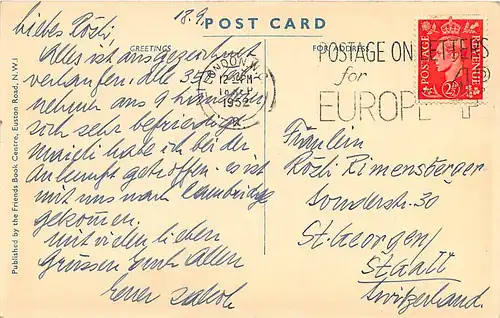 18.9.
POST CARD
GREETINGS
FOR ADDRESS
liebes Rösli.
Alles ist ausgezeichnet
verlaufen. alle 35
sich sehr befriedigt
habe ich bei der
Ankunft getroffen. es ist
mit uns nach
gekommen.
mit vielen lieben
Grüssen Euch Allen
Euer Jakob
LONDON. N.W.1
12 PM
1952
POSTAGE ON LETTERS
for
EUROPE 4
POSTAGE
REVENUE
2½D
Fräulein
Rösli Rimensberger
Sonderstr. 30
St. Georgen/
St. Gall
Switzerland.
Published by the Friends Book Centre, Euston Road, N.W.1